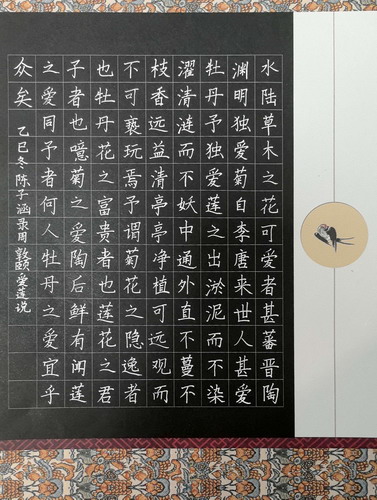 水陆草木之花可爱者甚蕃晋陶
渊明独爱菊自李唐来世人甚爱
牡丹予独爱莲之出淤泥而不染
濯清涟而不妖中通外直不蔓不
枝香远益清亭亭净植可远观而
不可亵玩焉予谓菊花之隐逸者
也牡丹花之富贵者也莲花之君
子者也噫菊之爱陶后鲜有闻莲
之爱同予者何人牡丹之爱宜乎
众矣
乙巳冬陈子涵录周敦颐爱莲说